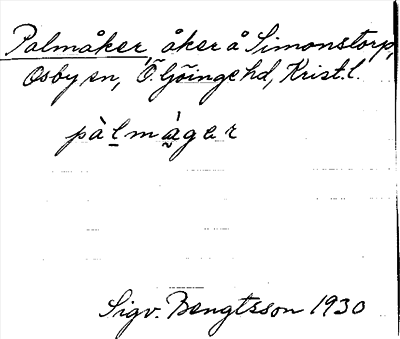 Palmåker, åker å Simonstorp,
Osby sn, Ö. Göinge hd, Krist. l.
pàlmàger
Sigv. Bengtsson 1930